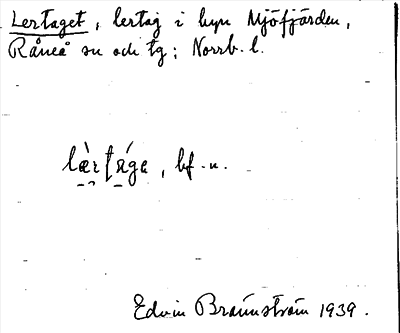 Lertaget, lertag i byn Mjöfjärden,
Råneå sn och tg; Norrb. l.
lær̀tága, bf. n.
Edvin Brännström 1939.